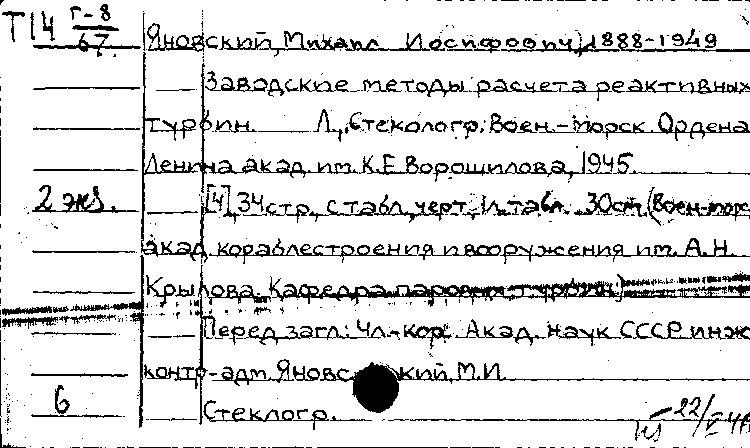 Т14 Г-8/67.
Яновский, Михаил Иосифович, 1888-1949
Заводские методы расчета реактивных
турбин. Л., Стеклогр. Воен.-морск. Ордена
Ленина акад. им. К.Е Ворошилова, 1945.
2 экз. [4], 34 стр., с табл., черт., 1 л. табл. 30см (Воен-морс
акад. кораблестроения и вооружения им. А.Н.
Крылова. Кафедра паровых турбин)
Перед загл.: Чл.-кор. Акад. наук СССР инж
контр-адм. Яновский, М.И.
6 Стеклогр.
22/V